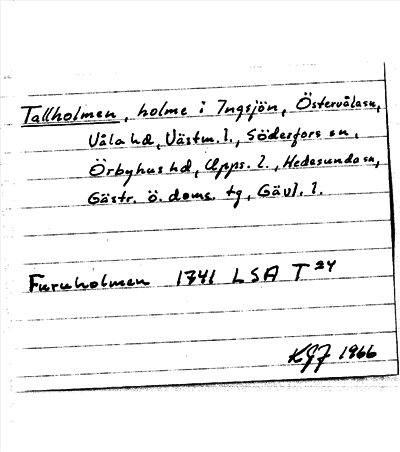 Tallholmen, holme i Ingsjön, Östervåla sn,
Våla hd, Västm. l., Söderfors sn,
Örbyhus hd, Upps. l., Hedesunda sn,
Gästr. ö. doms. tg, Gävl. l.
Furuholmen 1741 LSA T 24
KGF 1966